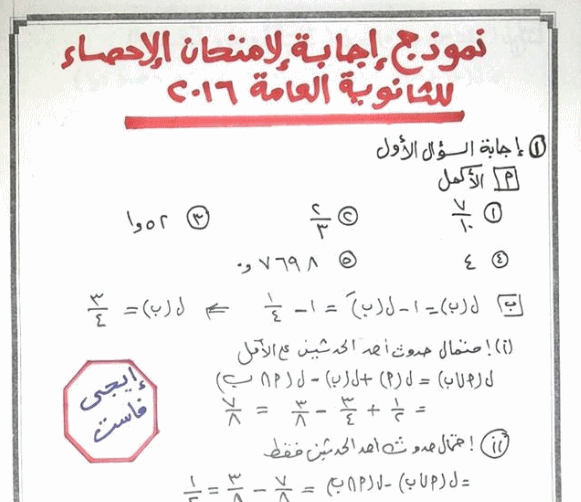 نموذج إجابة لامتحان الإحصاء
للثانوية العامة ٢٠١٦
١ إجابة السؤال الأول
P الأكمل
١ ٧/١٠ ٢ ٢/٣ ٣ ١٫٥٢
٤ ٤ ٥ ٠٫٧٦٩٨
ب ل(ب) = ١ − ل(بَ) = ١ − ١/٤ ⇐ ل(ب) = ٣/٤
(i) احتمال حدوث أحد الحدثين على الأقل
ل(P∪ب) = ل(P) + ل(ب) − ل(P∩ب)
= ١/٢ + ٣/٤ − ٣/٨ = ٧/٨
(ii) احتمال حدوث أحد الحدثين فقط
= ل(P∪ب) − ل(P∩ب) = ٧/٨ − ٣/٨ = ١/٢
إيجى
فاست